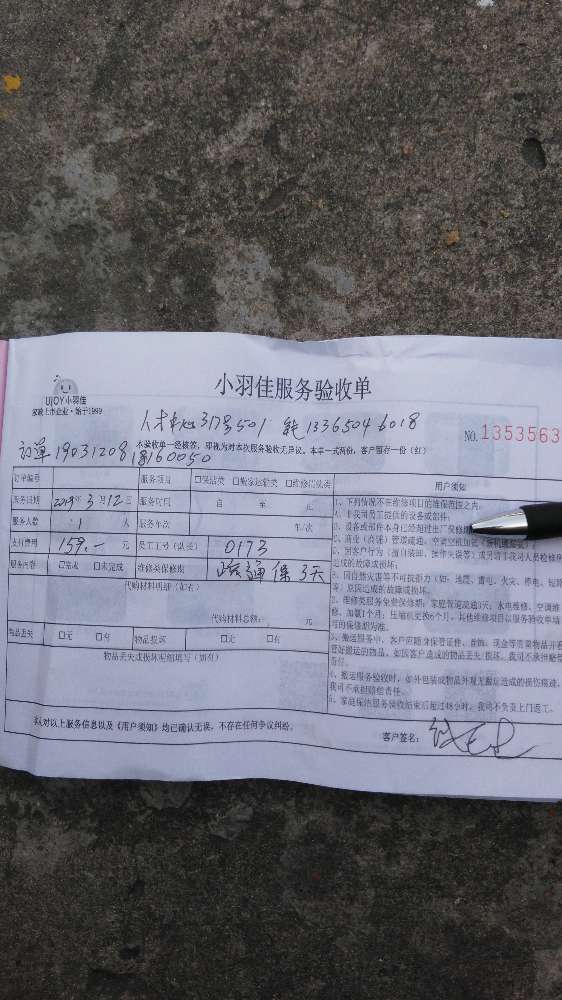 UjOY小羽佳
家政上市企业·始于1999
小羽佳服务验收单
501 13365046018
NO.1353563
订单 190312081
8160050
本验收单一经核签，即视为对本次服务验收无异议。本单一式两份，客户留存一份（红）
订单编号 服务项目 □保洁类 □搬家运输类 □维修清洗类
服务日期 2019年3月12日 服务时间 自 至
服务人数 1 人 服务车次 车/次
支付费用 159.- 元 员工工号（队长） 0173
服务内容 □完成 □未完成 维修类保修期 疏通保3天
代购材料明细（如有）
代购材料总额： 元
物品丢失 □无 □有 物品损坏 □无 □有
物品丢失或损坏明细填写（如有）
用户须知
1、下列情况不在维修项目的维保范围之内：
1、非我司员工提供的设备或部件；
2、设备或部件本身已经超过生厂保修期
3、商业（店铺）管道疏通、空调空气加氟
4、因客户行为（擅自装卸、操作失误等）或另请非我司人员检修所
造成的故障或损坏；
5、因自然灾害等不可抗拒力（如：地震、雷电、火灾、停电、短路
等）原因造成的故障或损坏。
2、维修类服务免费保修期：家庭管道疏通3天；水电维修、空调维
修、加氟1个月；压缩机更换6个月，其他维修项目以服务验收单填
写的保修期为准。
3、搬运服务中，客户应随身保管证件、首饰、现金等贵重物品并看
管好搬运的物品，如因客户造成的物品丢失/损坏，我司不承担赔偿
责任。
4、搬运服务验收时，如外包装或物品外观无搬运造成的损伤痕迹，
我司不承担赔偿责任。
5、家庭保洁服务验收结束后超过48小时，我司不负责上门返工。
本人对以上服务信息以及《用户须知》均已确认无误，不存在任何争议纠纷。
客户签名：